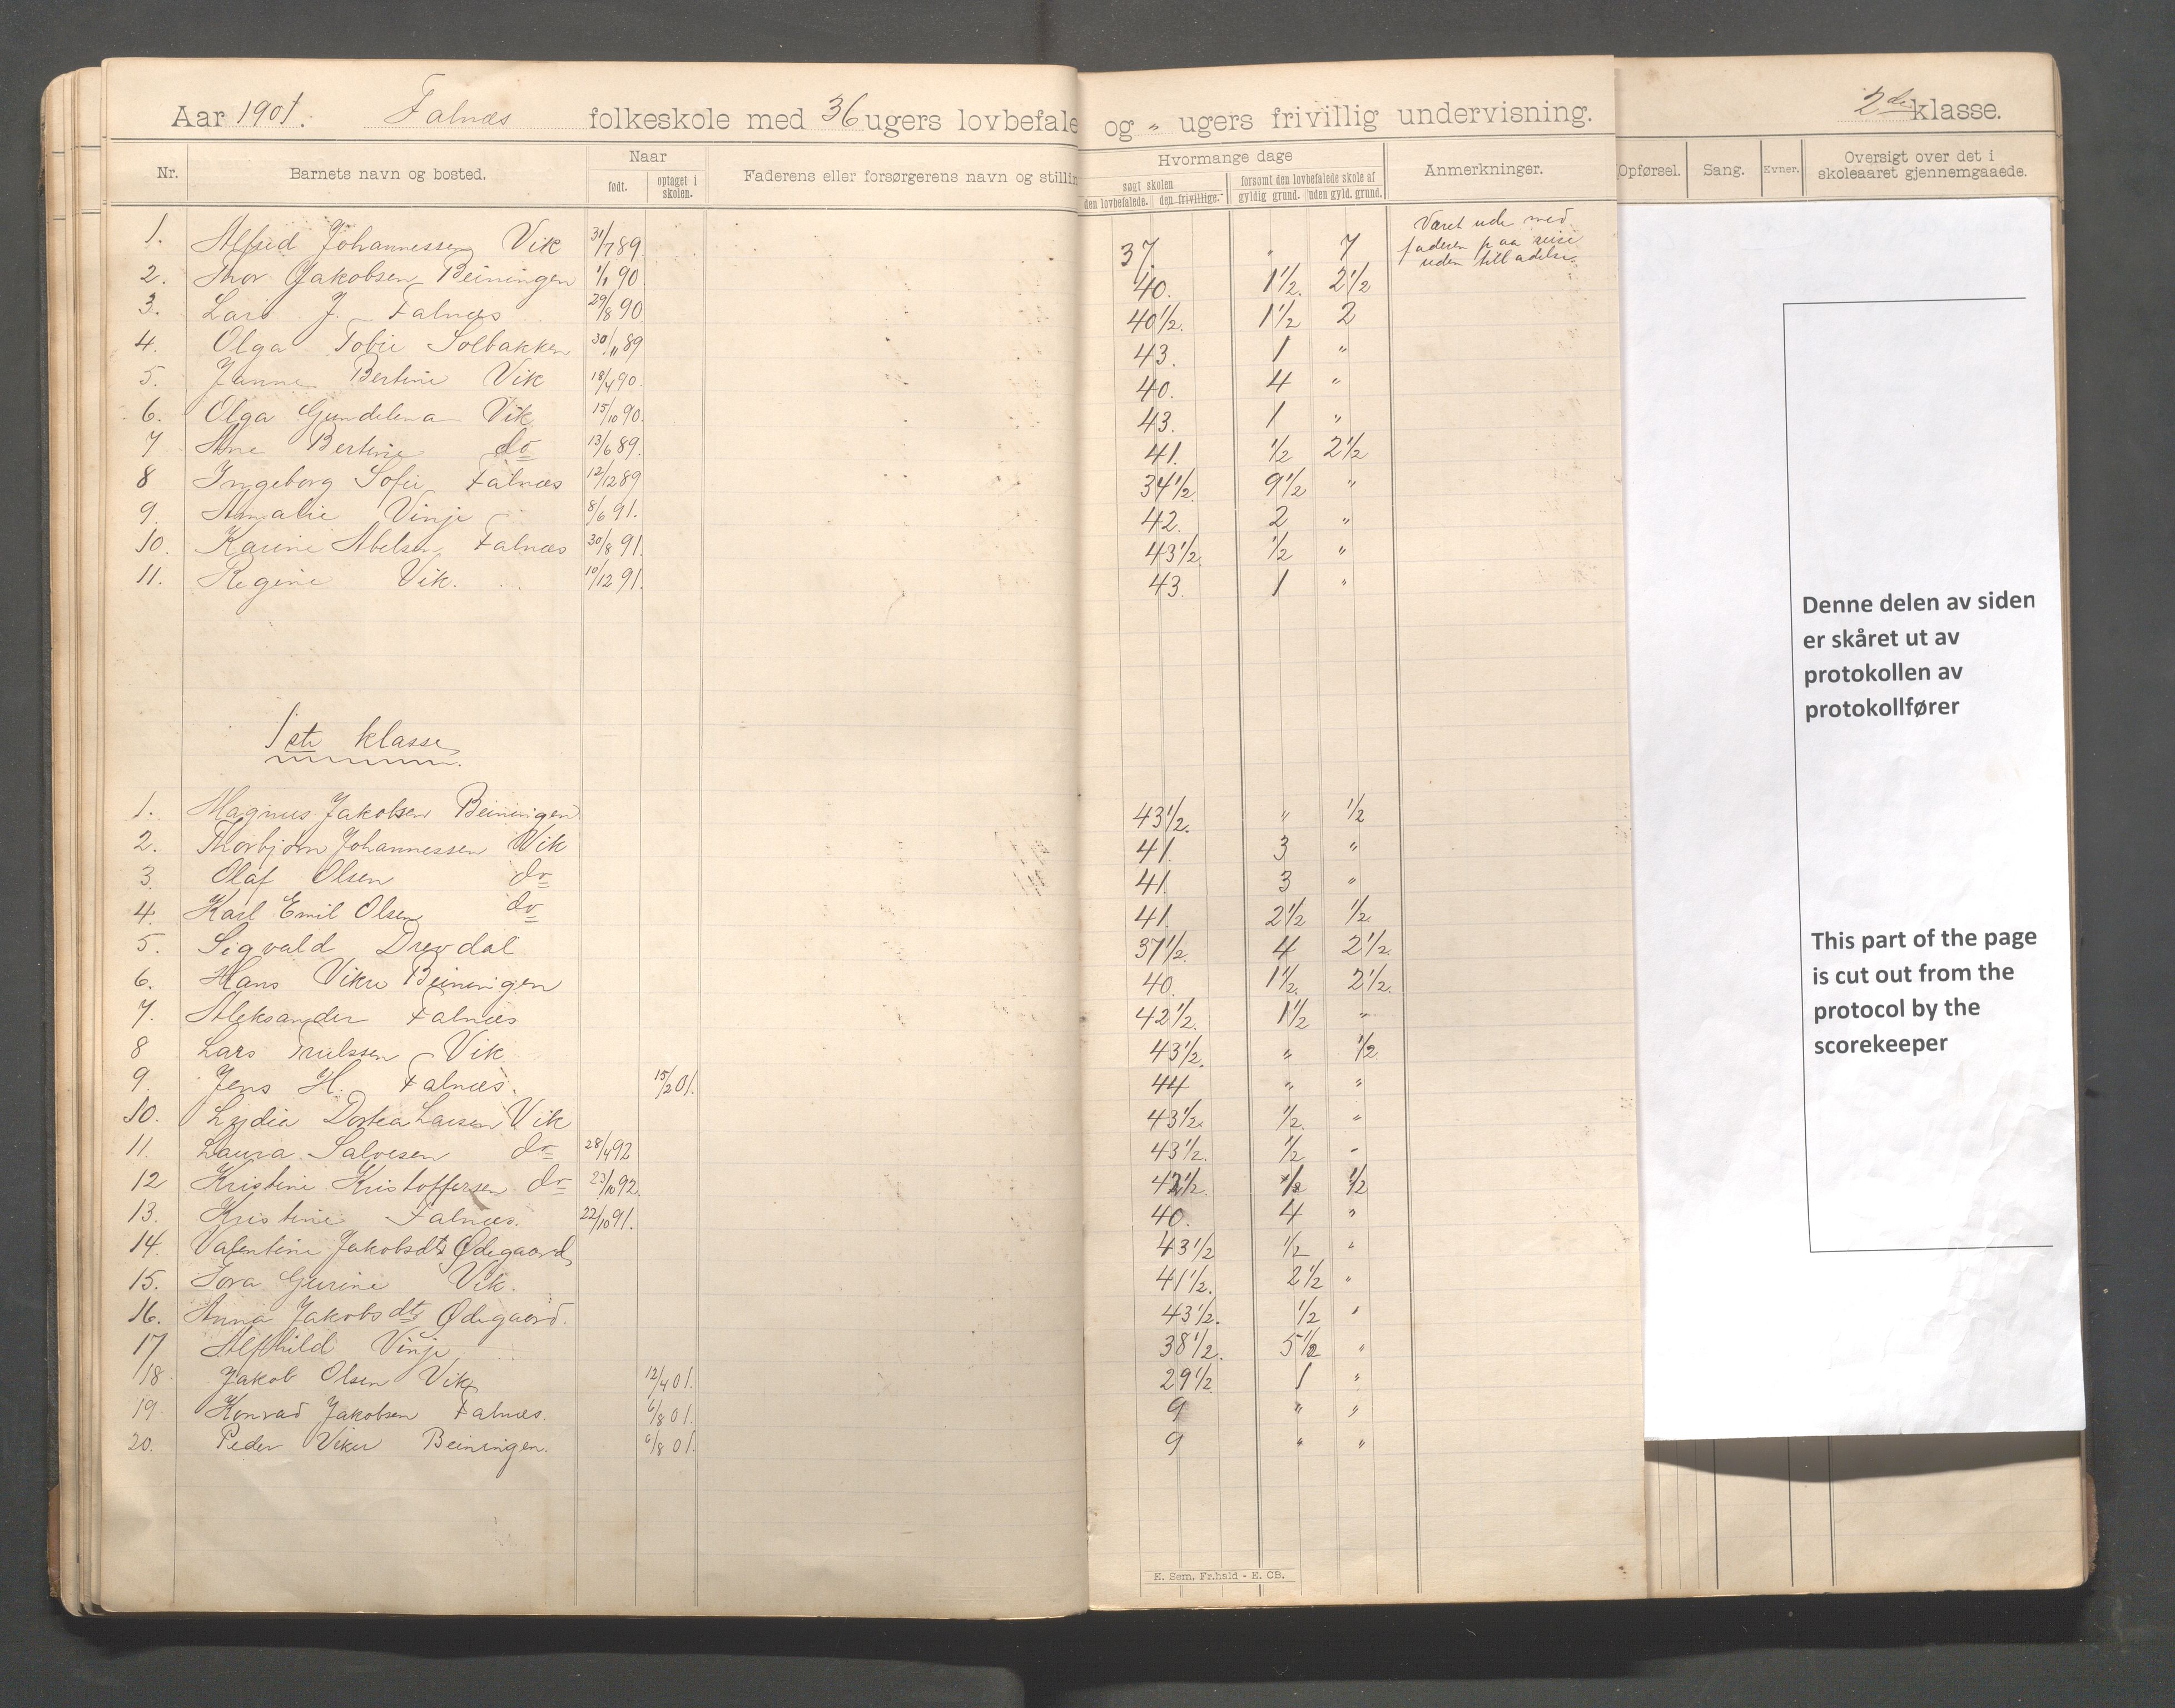 Aar 1901. Falnæs folkeskole med 36 ugers lovbefale og " ugers frivillig undervisning. 2den klasse.
Nr. Barnets navn og bosted. Naar født. optaget i skolen. Faderens eller forsørgerens navn og stillin Hvormange dage søgt skolen den lovbefalede. den frivillige. forsømt den lovbefalede skole af gyldig grund. uden gyld. grund. Anmerkninger. Opførsel. Sang. Evner. Oversigt over det i skoleaaret gjennemgaaede.
1. Alfred Johannessen Vik 31/7 89. 37. " 7 Været ude med faderen paa reise uden tilladelse.
2. Thor Jakobsen Beiningen 1/1 90. 40. 1 1/2. 2 1/2
3. Lars J. Falnæs 29/8 90 40 1/2. 1 1/2 2
4. Olga Tobie Solbakken 30/11 89 43. 1 "
5. Janne Bertine Vik 18/4 90. 40. 4 "
6. Olga Gundelena Vik 15/10 90. 43. 1 "
7 Ane Bertine do 13/6 89. 41. 1/2 2 1/2
8 Ingeborg Sofie Falnæs 12/12 89 34 1/2. 9 1/2 "
9. Amalie Vinje 8/6 91. 42. 2 "
10. Karine Abelsen Falnæs 30/8 91. 43 1/2. 1/2 "
11. Regine Vik. 10/12 91. 43. 1 "
1ste klasse
1. Magnus Jakobsen Beiningen 43 1/2. " 1/2
2. Thorbjørn Johannessen Vik 41. 3 "
3. Olaf Olsen do 41. 3 "
4. Karl Emil Olsen do 41. 2 1/2 1/2.
5. Sigvald Drevdal 37 1/2. 4 2 1/2.
6. Hans Vikre Beiningen 40. 1 1/2. 2 1/2.
7. Aleksander Falnæs 42 1/2. 1 1/2 "
8 Lars Trulssen Vik 43 1/2. " 1/2.
9. Jens H. Falnæs. 15/2 01. 44 " "
10. Lydia Dortea Larsen Vik 43 1/2. 1/2. "
11. Laura Salvesen do 28/4 92 43 1/2. 1/2 "
12 Kristine Kristoffersen do 23/10 92. 42 1/2. 1/2 1/2
13. Kristine Falnæs. 22/10 91. 40. 4 "
14. Valentine Jakobsdtr Ødegaard 43 1/2 1/2 "
15. Tora Gurine Vik. 41 1/2. 2 1/2 "
16. Anna Jakobsdtr Ødegaard. 43 1/2. 1/2 "
17 Alfhild Vinje 38 1/2. 5 1/2 "
18. Jakob Olsen Vik 12/4 01. 29 1/2. 1 "
19. Konrad Jakobsen Falnæs. 6/8 01. 9 " "
20. Peder Vikre Beiningen. 6/8 01. 9 " "
E. Sem, Fr.hald - E. CB.
Denne delen av siden
er skåret ut av
protokollen av
protokollfører
This part of the page
is cut out from the
protocol by the
scorekeeper